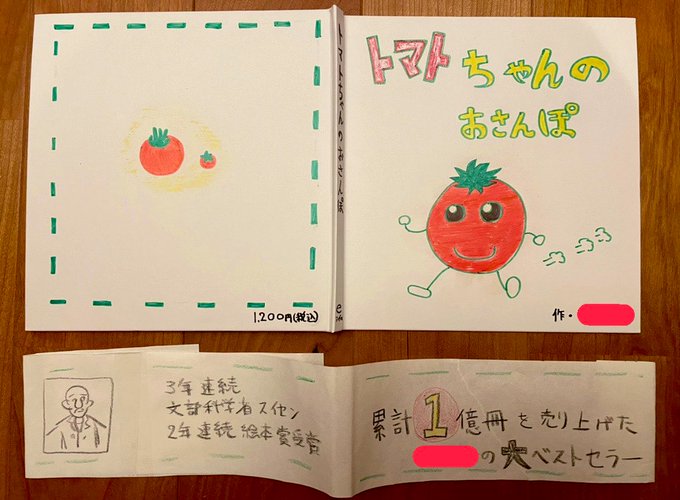 トマトちゃんの
おさんぽ
作・
トマトちゃんのおさんぽ
e
1.200円(税込)
3年連続
文部科学者スイセン
2年連続 絵本賞受賞
累計1億冊を売り上げた
の大ベストセラー